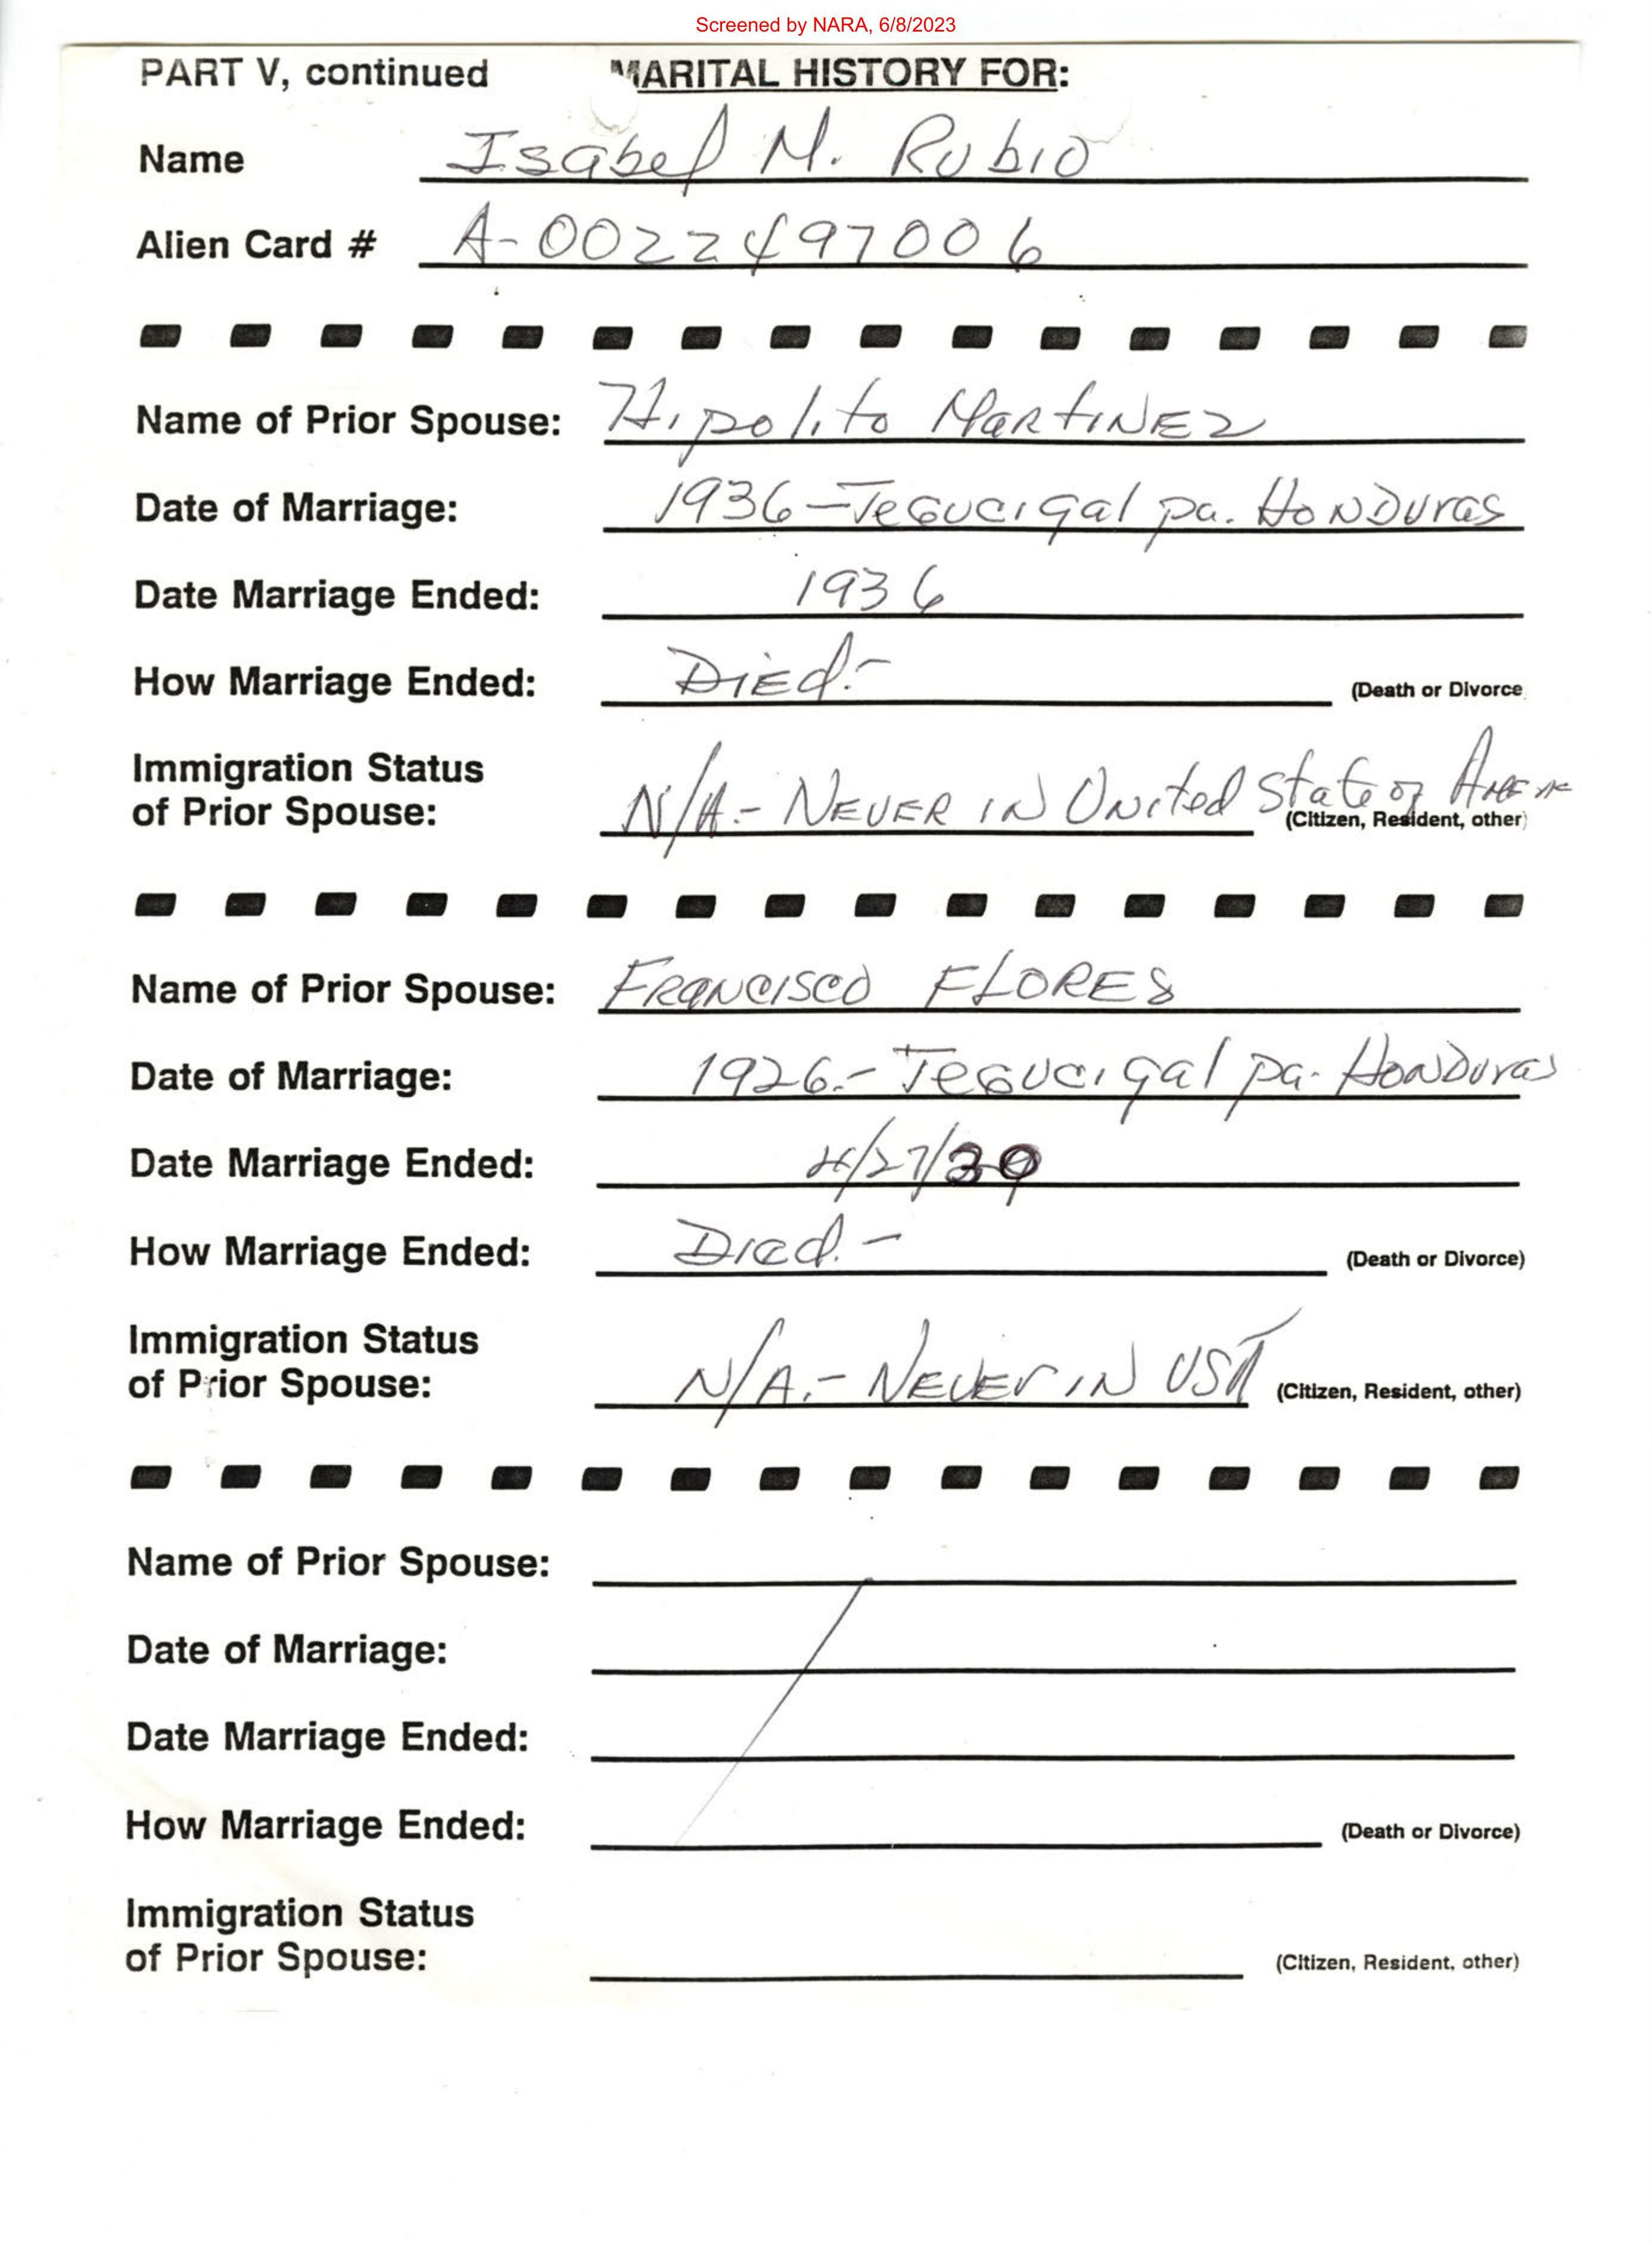 Screened by NARA, 6/8/2023
PART V, continued MARITAL HISTORY FOR:
Name Isabel M. Rubio
Alien Card # A-0022497006
Name of Prior Spouse: Hipolito MARTINEZ
Date of Marriage: 1936-Tegucigalpa. HONDURAS
Date Marriage Ended: 1936
How Marriage Ended: DiEd.- (Death or Divorce
Immigration Status
of Prior Spouse: N/A.- NEVER IN United State of
(Citizen, Resident, other)
Name of Prior Spouse: FRANCISCO FLORES
Date of Marriage: 1926.- Tegucigalpa. HONDURAS
Date Marriage Ended: 4/27/39
How Marriage Ended: Died.- (Death or Divorce)
Immigration Status
of Prior Spouse: N/A.- NEVER IN USA (Citizen, Resident, other)
Name of Prior Spouse:
Date of Marriage:
Date Marriage Ended:
How Marriage Ended: (Death or Divorce)
Immigration Status
of Prior Spouse: (Citizen, Resident, other)